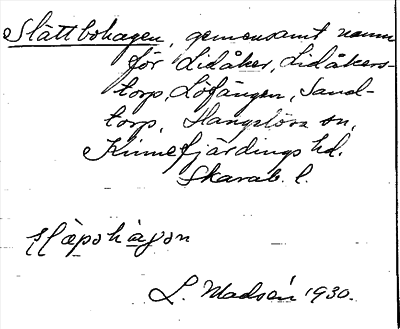 Slättbohagen, gemensamt namn
för Lidåker, Lidåkers-
torp, Löfängen, Sand-
torp, Hangelösa sn,
Kinnefjärdings hd.
Skarab. l.
L. Madsén 1930.